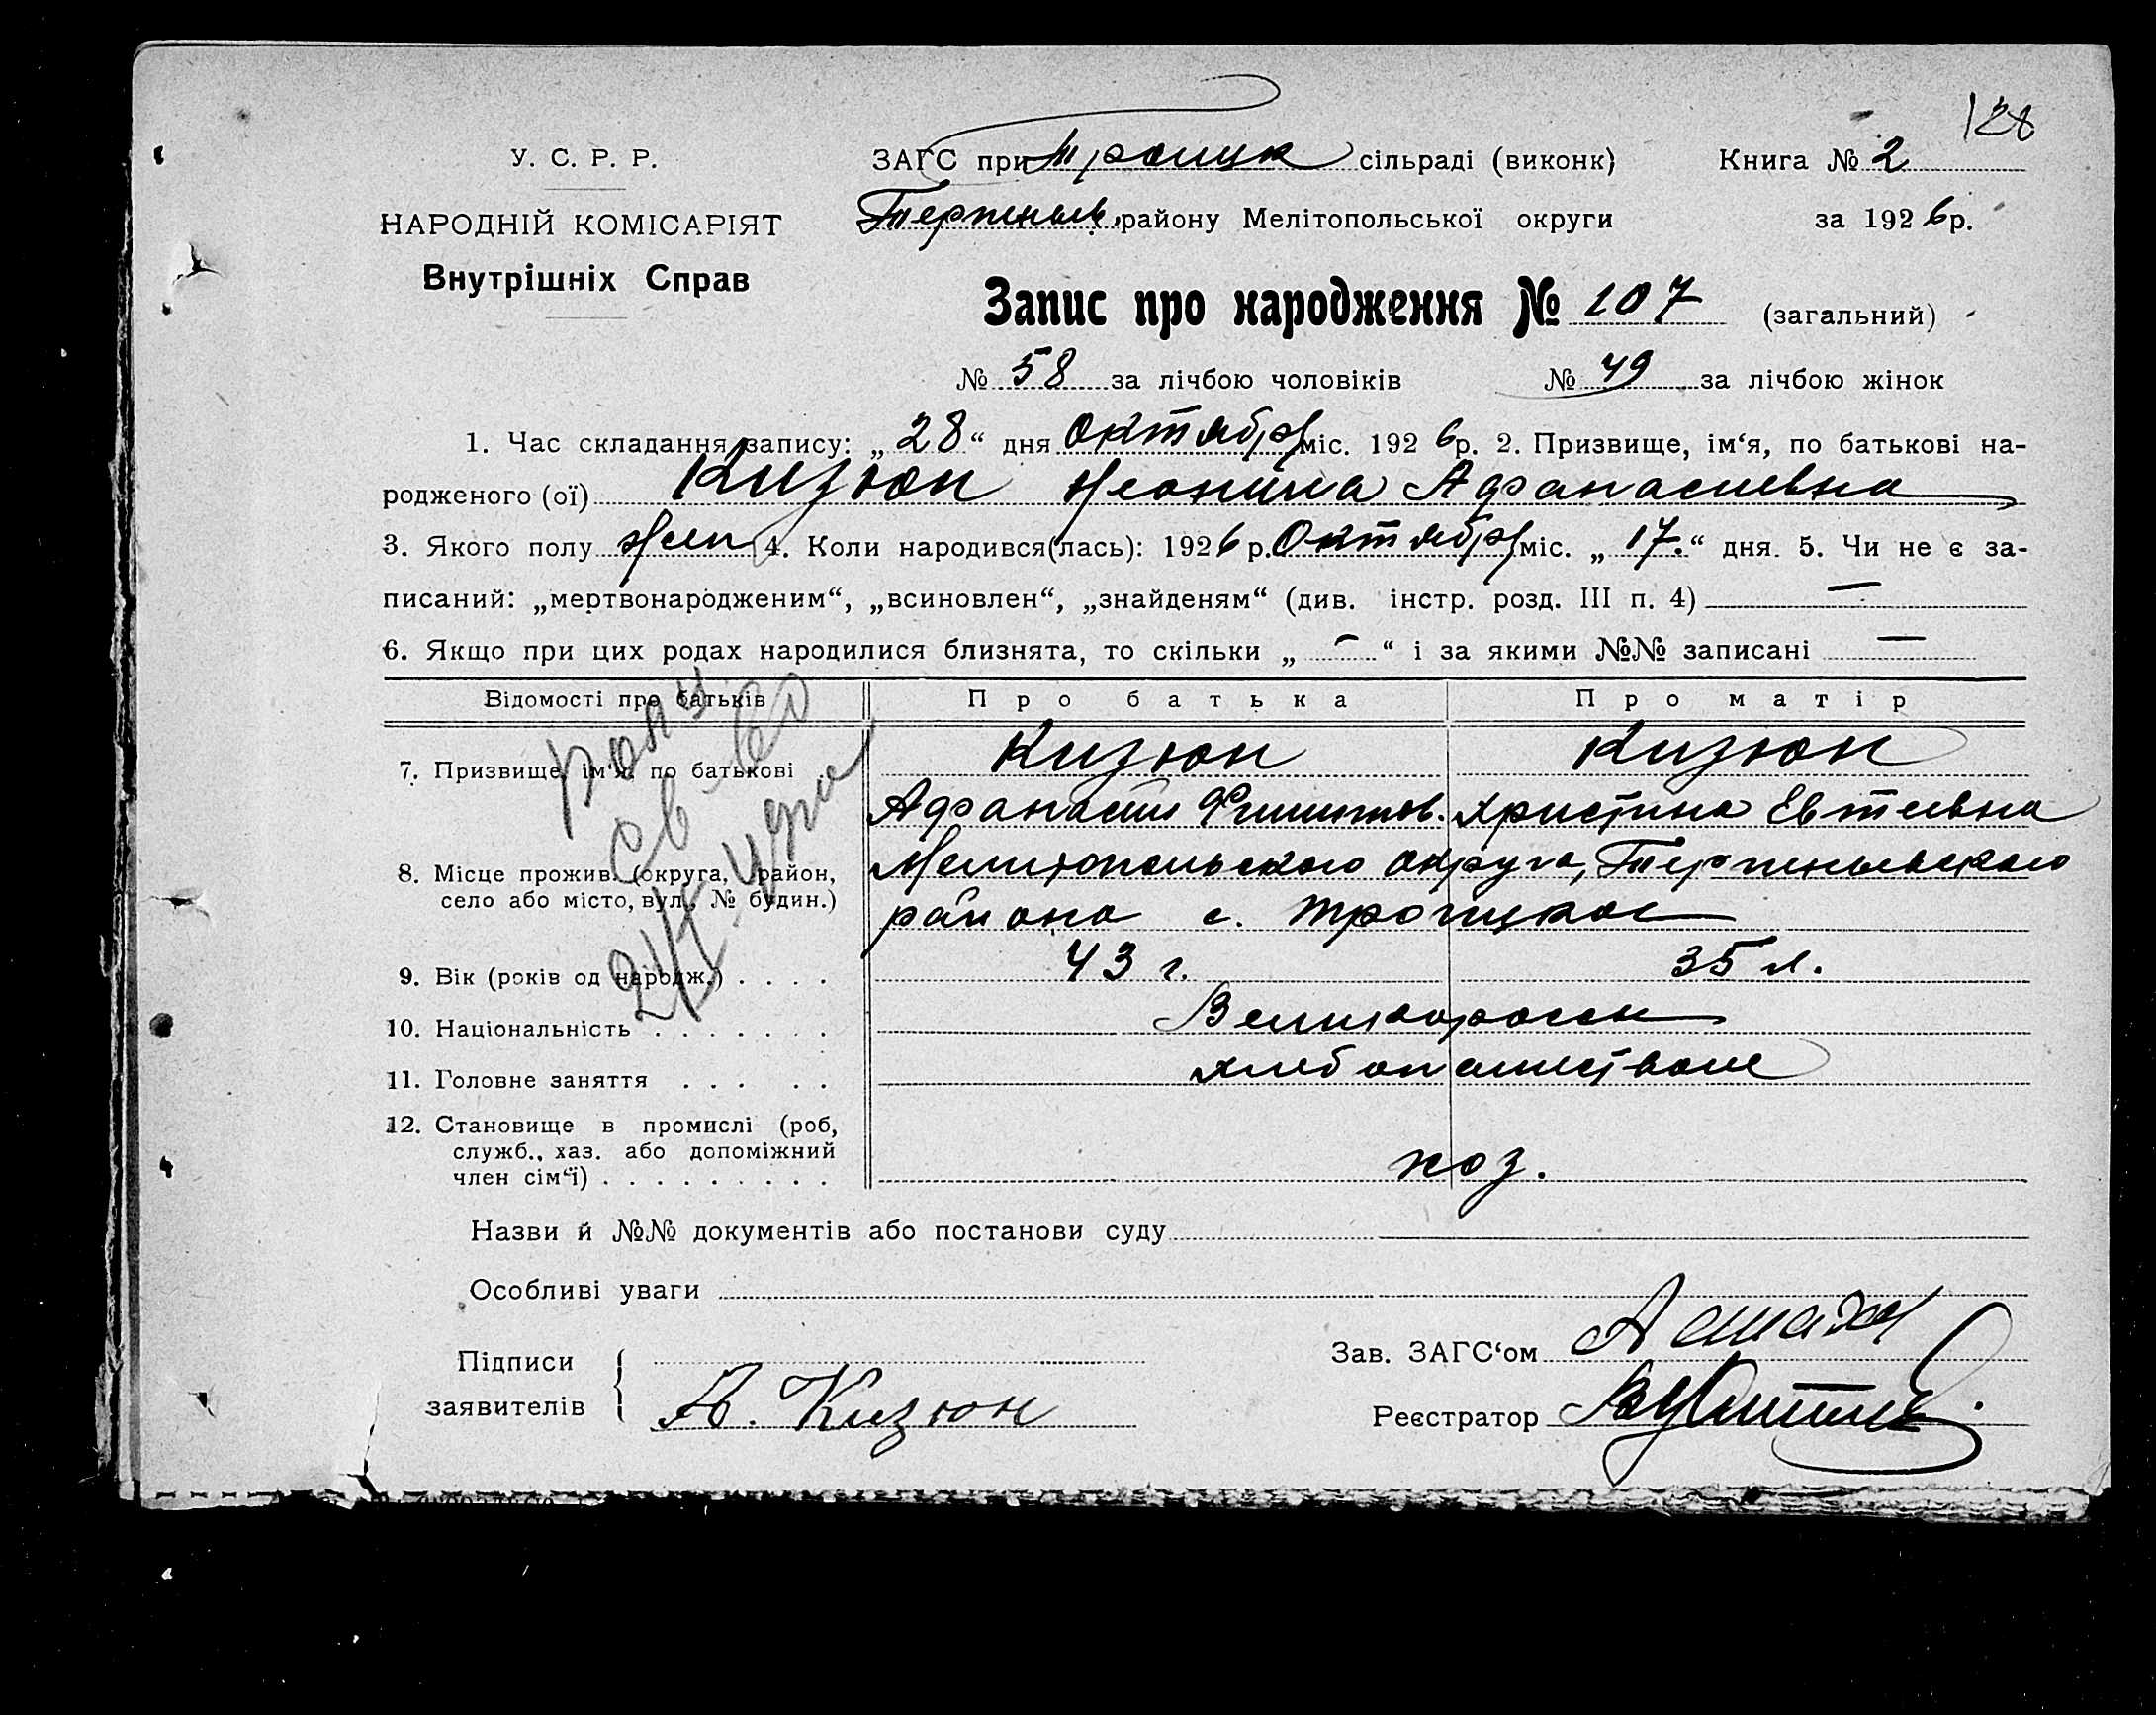 128
У. С. Р. Р.
ЗАГС при Троицк сільраді (виконк)
Книга № 2
НАРОДНІЙ КОМІСАРІЯТ
Терпеньев. району Мелітопольської округи
за 1926 р.
Внутрішніх Справ
Запис про народження № 107 (загальний)
№ 58 за лічбою чоловіків № 49 за лічбою жінок
1. Час складання запису: „28“ дня Октября міс. 1926 р. 2. Призвище, ім‘я, по батькові на-
родженого (ої) Кизюн Неонила Афанасиевна
3. Якого полу жен 4. Коли народився(лась): 1926 р. Октября міс. „17.“ дня. 5. Чи не є за-
писаний: „мертвонародженим“, „всиновлен“, „знайденям“ (див. інстр. розд. III п. 4) —
6. Якщо при цих родах народилися близнята, то скільки „ — “ і за якими №№ записані —
Відомості про батьків Про батька Про матір
7. Призвище, ім‘я, по батькові Кизюн Кизюн
Афанасий Филиппов. Христина Евтеевна
8. Місце прожив. (округа, район, Мелитопольского округа, Терпеньевского
село або місто, вул., № будин.) района с. Троицкое
9. Вік (років од народж.) . . . . 43 г. 35 л.
10. Національність . . . . . . . Великороссы
11. Головне заняття . . . . . хлебопашество
12. Становище в промислі (роб,
служб., хаз. або допоміжний
член сім‘ї) . . . . . . . . . хоз.
Назви й №№ документів або постанови суду
Особливі уваги
Підписи
Зав. ЗАГС‘ом
заявителів А. Кизюн
Реєстратор